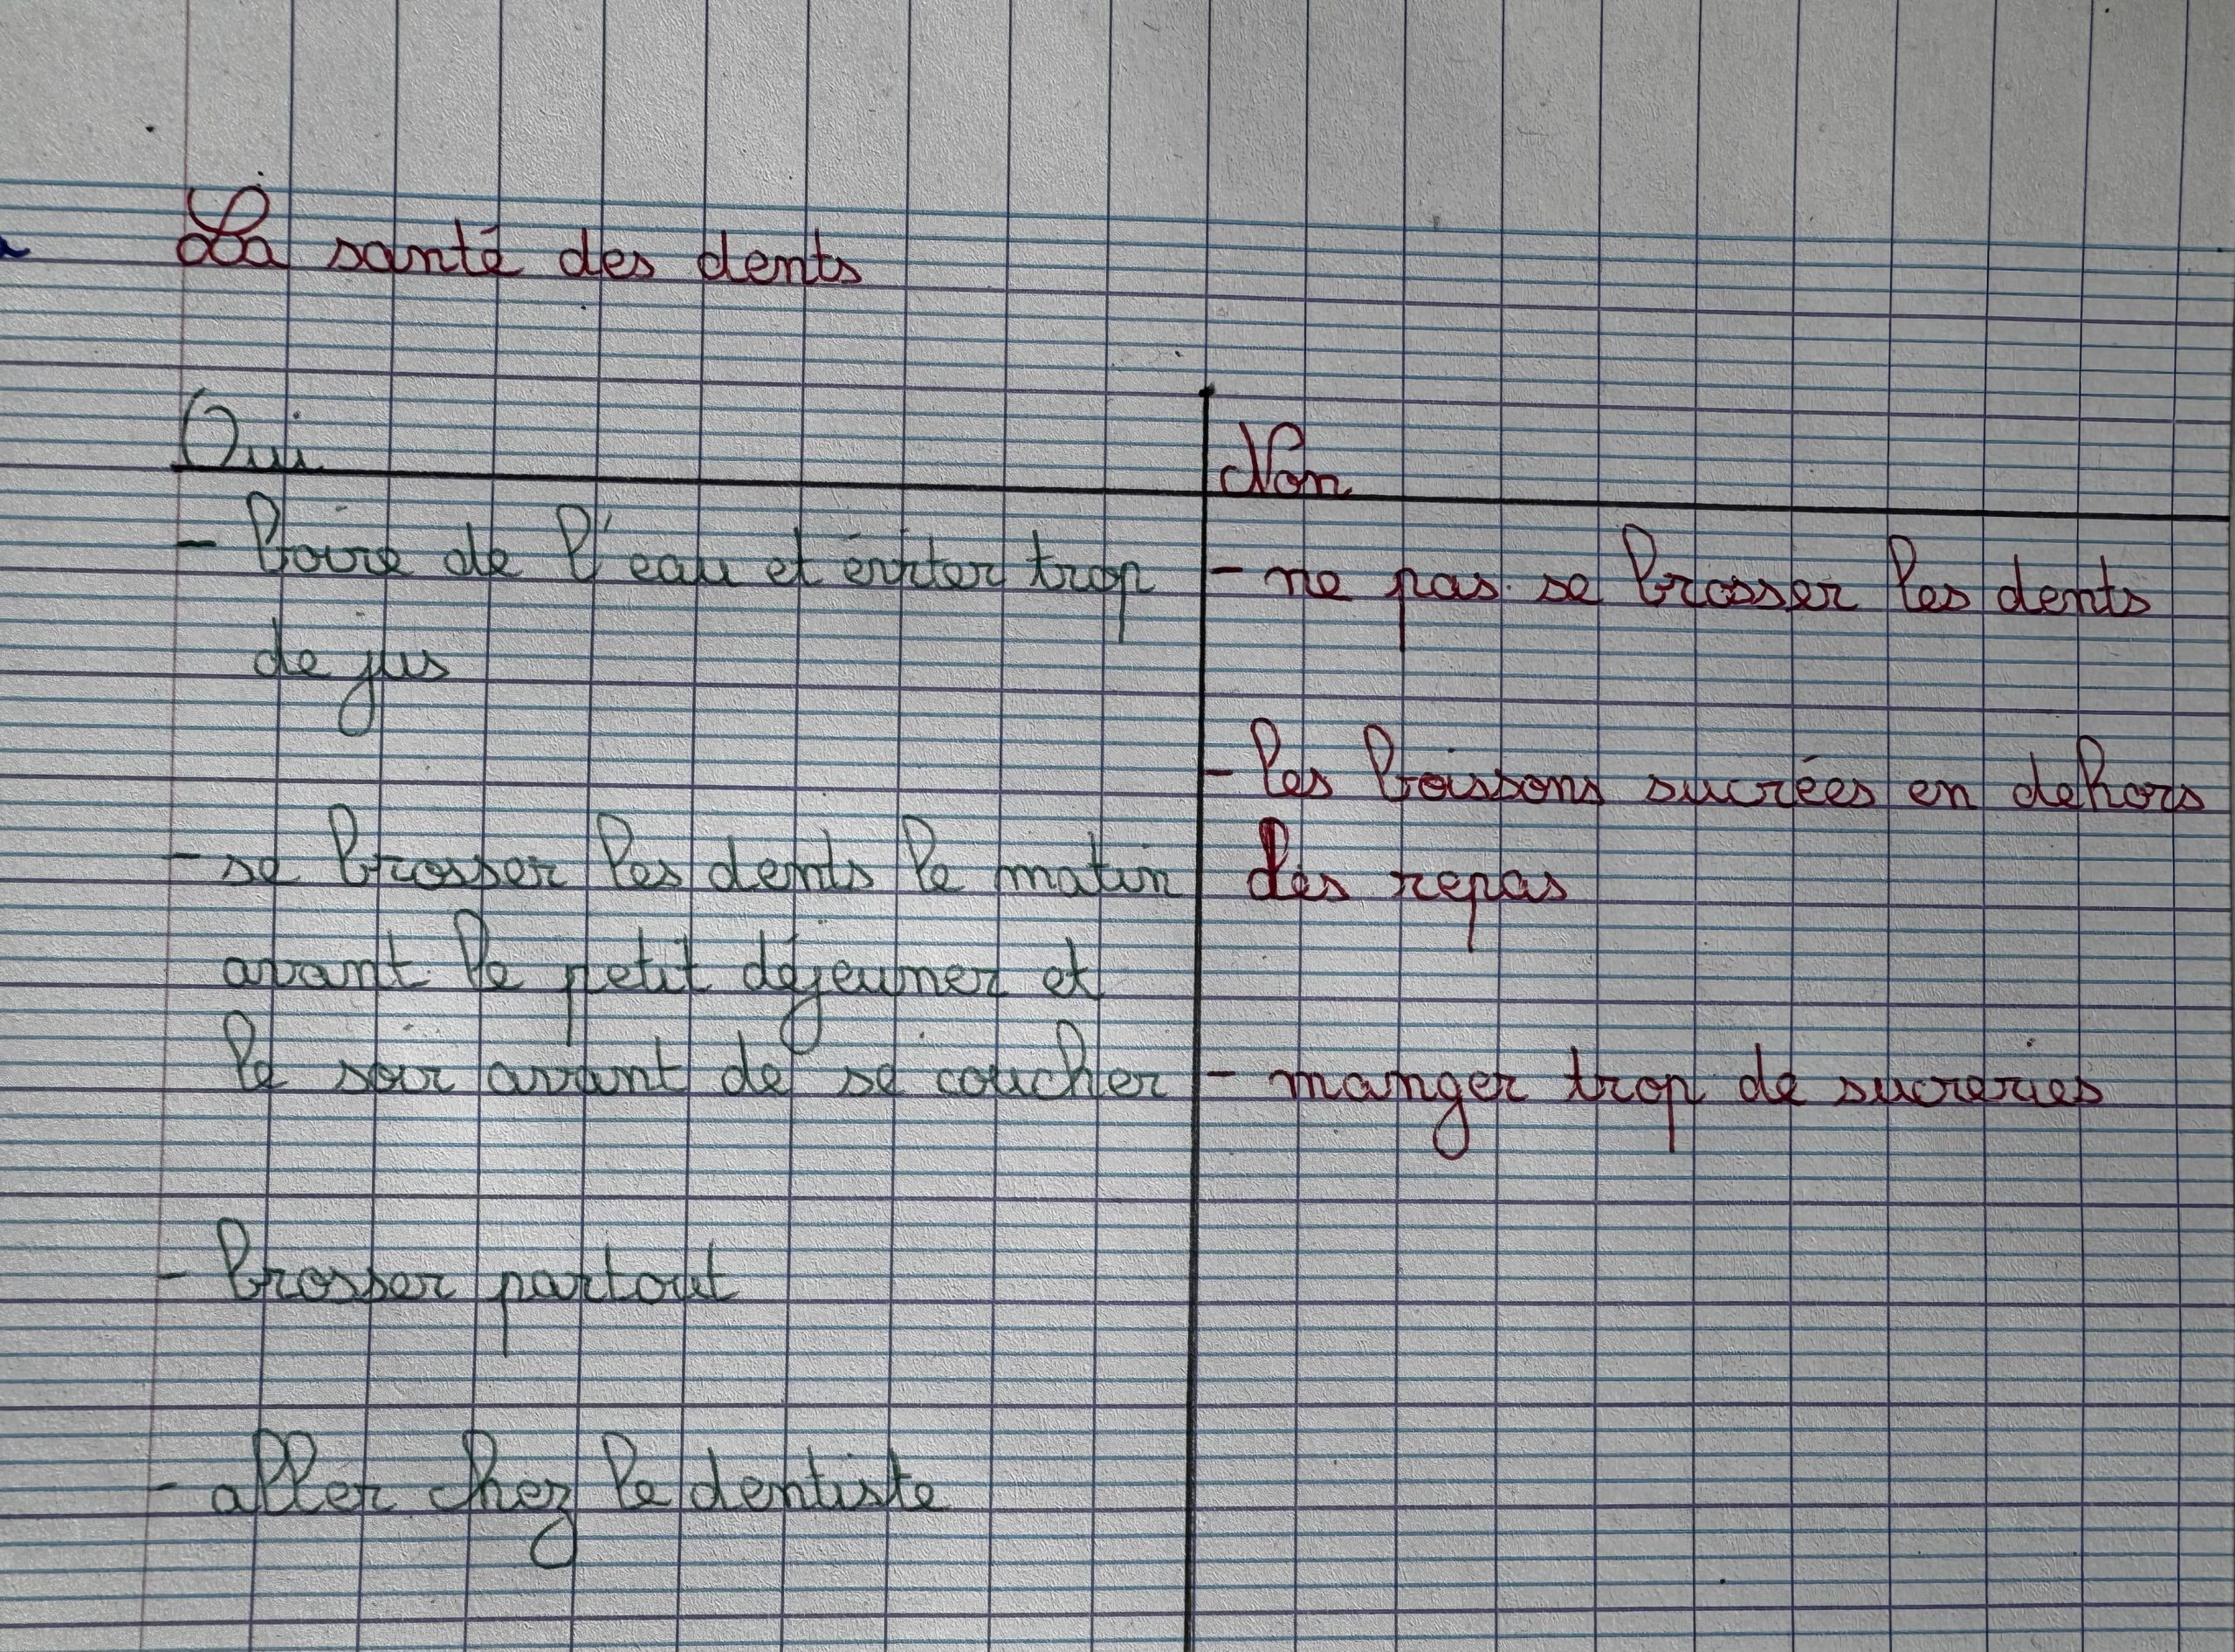 La santé des dents
Oui
- boire de l'eau et éviter trop
de jus
- se brosser les dents le matin
avant le petit déjeuner et
le soir avant de se coucher
- brosser partout
- aller chez le dentiste
Non
- ne pas se brosser les dents
- les boissons sucrées en dehors
des repas
- manger trop de sucreries